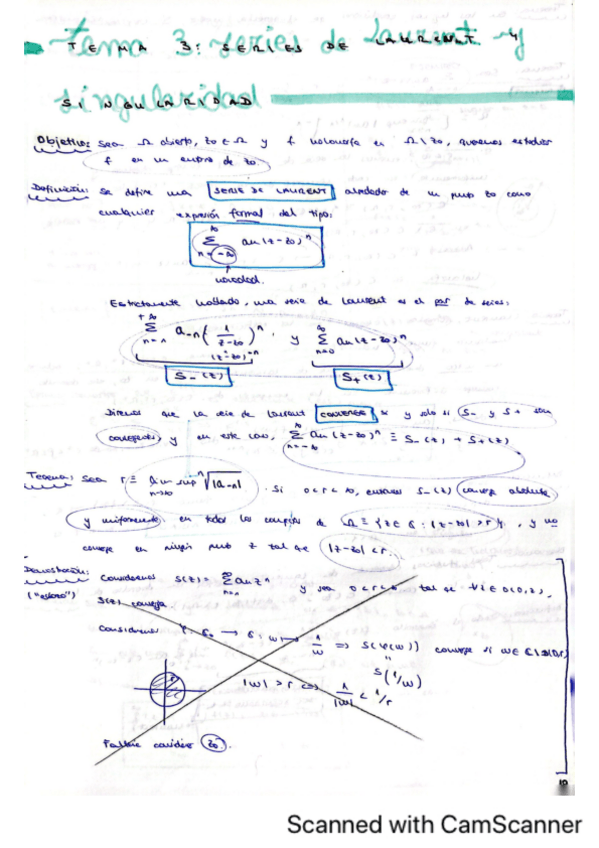 Tema 3: series de Laurent y
TEMA 3: SERIES DE LAURENT Y
singularidad
SINGULARIDAD
Objetivo: Sea Ω abierto, z₀ ∈ Ω y f holomorfa en Ω \ z₀, queremos estudiar
f en un entorno de z₀.
Definición: Se define una SERIE DE LAURENT alrededor de un punto z₀ como
cualquier expresión formal del tipo:
∞ Σ n=-∞ an(z-z₀)ⁿ
novedad.
Estrictamente hablado, una serie de Laurent es el par de series:
+∞ Σ n=1 a-n (1/(z-z₀))ⁿ y ∞ Σ n=0 an(z-z₀)ⁿ
(z-z₀)⁻ⁿ
S-(z) S+(z)
Diremos que la serie de Laurent CONVERGE si y solo si S- y S+ son
convergentes y en este caso, ∞ Σ n=-∞ an(z-z₀)ⁿ ≡ S-(z) + S+(z)
Teorema: Sea r ≡ lim sup n→∞ ⁿ√|a-n|. Si 0<r<∞, entonces S-(z) converge absoluta
y uniformemente en todos los compactos de Ω ≡ {z ∈ ℂ : |z-z₀| > r}, y no
converge en ningún punto z tal que |z-z₀| < r.
Demostración: Consideremos S(z) = ∞ Σ n=1 an zⁿ y sea 0<r< tal que
("esbozo") S(z) converja
Consideremos → ℂ : w ↦ 1/w ⇒ S(φ(w)) converge si w ∈
" S(1/w)
|w| > r ⇔ 1/|w| < 1/r
Faltaría considerar z₀.
10
Scanned with CamScanner